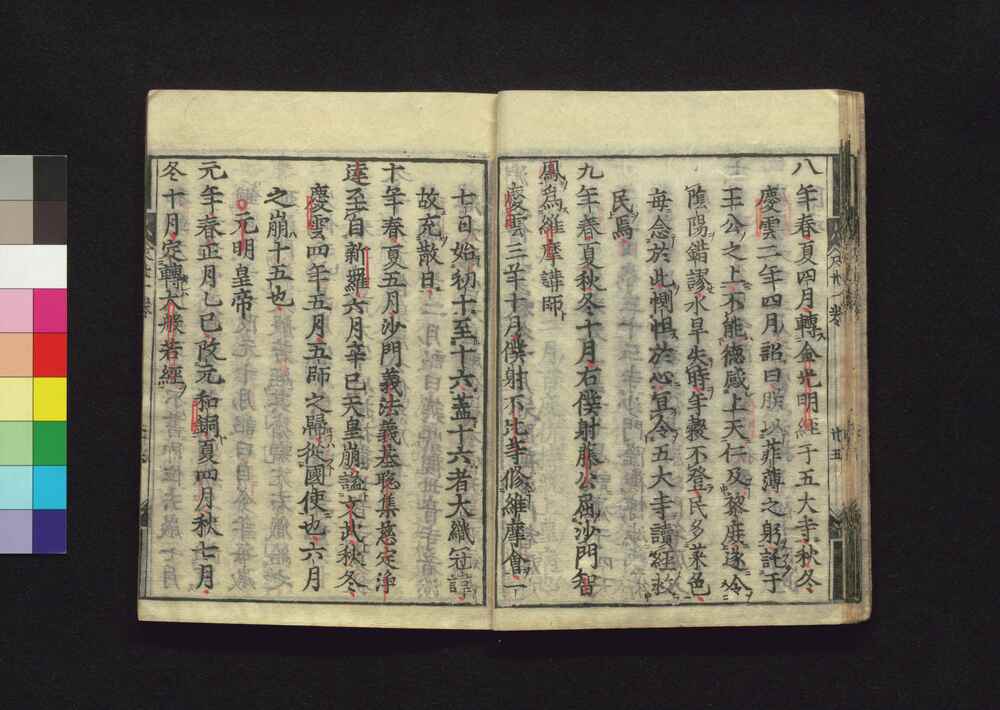 八年春夏四月轉金光明經于五大寺秋冬
慶雲二年四月詔曰朕以菲薄之躬託于
王公之上不能德感上天仁及黎庶遂令
陰陽錯謬水旱失時年穀不登民多菜色
每念於此惻怛於心宜令五大寺讀經救
民焉
九年春夏秋冬十月右僕射藤公屈沙門智
鳳為維摩講師
慶雲三年十月僕射不比等修維摩會一
七日始初十至十六蓋十六者大織冠諱
故充散日
十年春夏五月沙門義法義基聡集慈定淨
達至自新羅六月辛巳天皇崩謚文武秋冬
慶雲四年五月五師之歸從國使也六月
之崩十五也
元明皇帝
元年春正月乙巳改元和銅夏四月秋七月
冬十月定轉大般若經